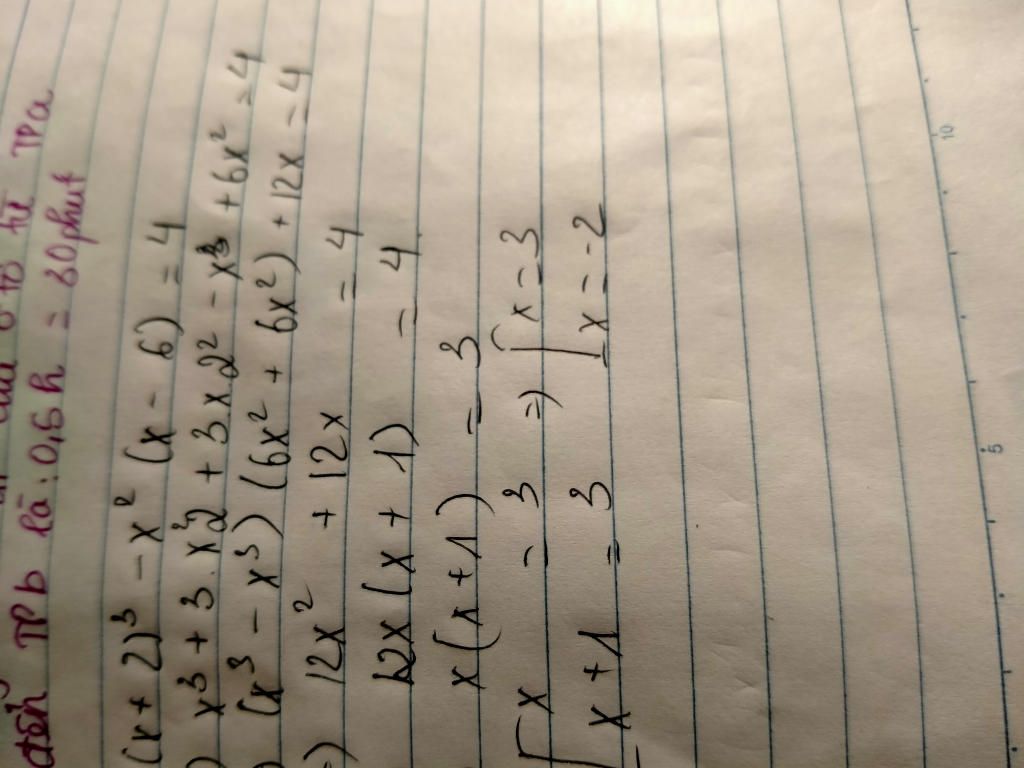 đến TPb là: 0,5h = 30phút
(x + 2)³ - x² (x - 6) = 4
x³ + 3.x²2 + 3.x2² - x³ + 6x² = 4
(x³ - x³) (6x² + 6x²) + 12x = 4
12x² + 12x = 4
12x(x + 1) = 4
x(x+1) = 3
[x = 3 => [x = 3
[x+1 = 3 [x = -2
5
10